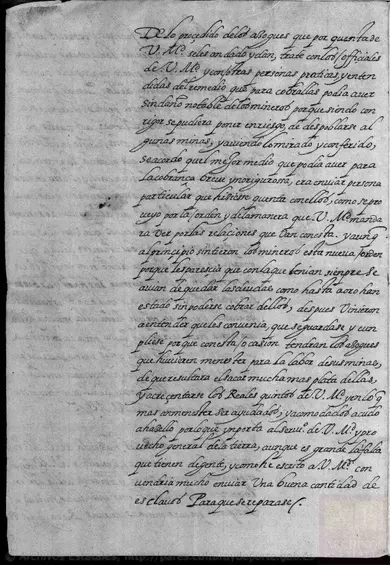 De lo proçedido de los açogues que por quenta de
V. Md. se les an dado y dan, trate con los officiales
de V. Md. y con otras personas praticas y enten
didas del remedio que para cobrallas podia aver
sin daño notable de los mineros porque siendo con
rigor se pudiera poner en riesgo, de despoblarse al
gunas minas, y aviendolo mirado y conferido,
se acordo qu el mejor medio que podia aver para
la cobrança breve y no rigurosa, era enviar persona
particular que hiciese quenta con ellos, como se pro
veyo por la orden y de la manera que V. Md. manda
ra ver por las relaciones que van con esta. y aunq
al principio sintieron los mineros esta nueva horden
porque les pareçia que con la que tenian siempre se
avian de quedar las deudas como hasta aora han
estado sin poderse cobrar dellos, despues vinieron
a entender que les convenia, que se guardase y cum
pliese porque con esta ocasion tendran los açogues
que huvieren menester para la labor de sus minas,
de que resultara el sacar mucha mas plata dellas,
y acreçentarse los Reales quintos de V. Md. y en lo q
mas an menester ser ayudados, y acomodados acudo
a hazello por lo que ynporta al servº. de V. Md. y pro
vecho general de la tierra, aunque es grande la falta
que tienen de gente, y como he escrito a V. Md. con
vendria mucho enviar una buena cantidad de
esclavos Para que se reparase /.